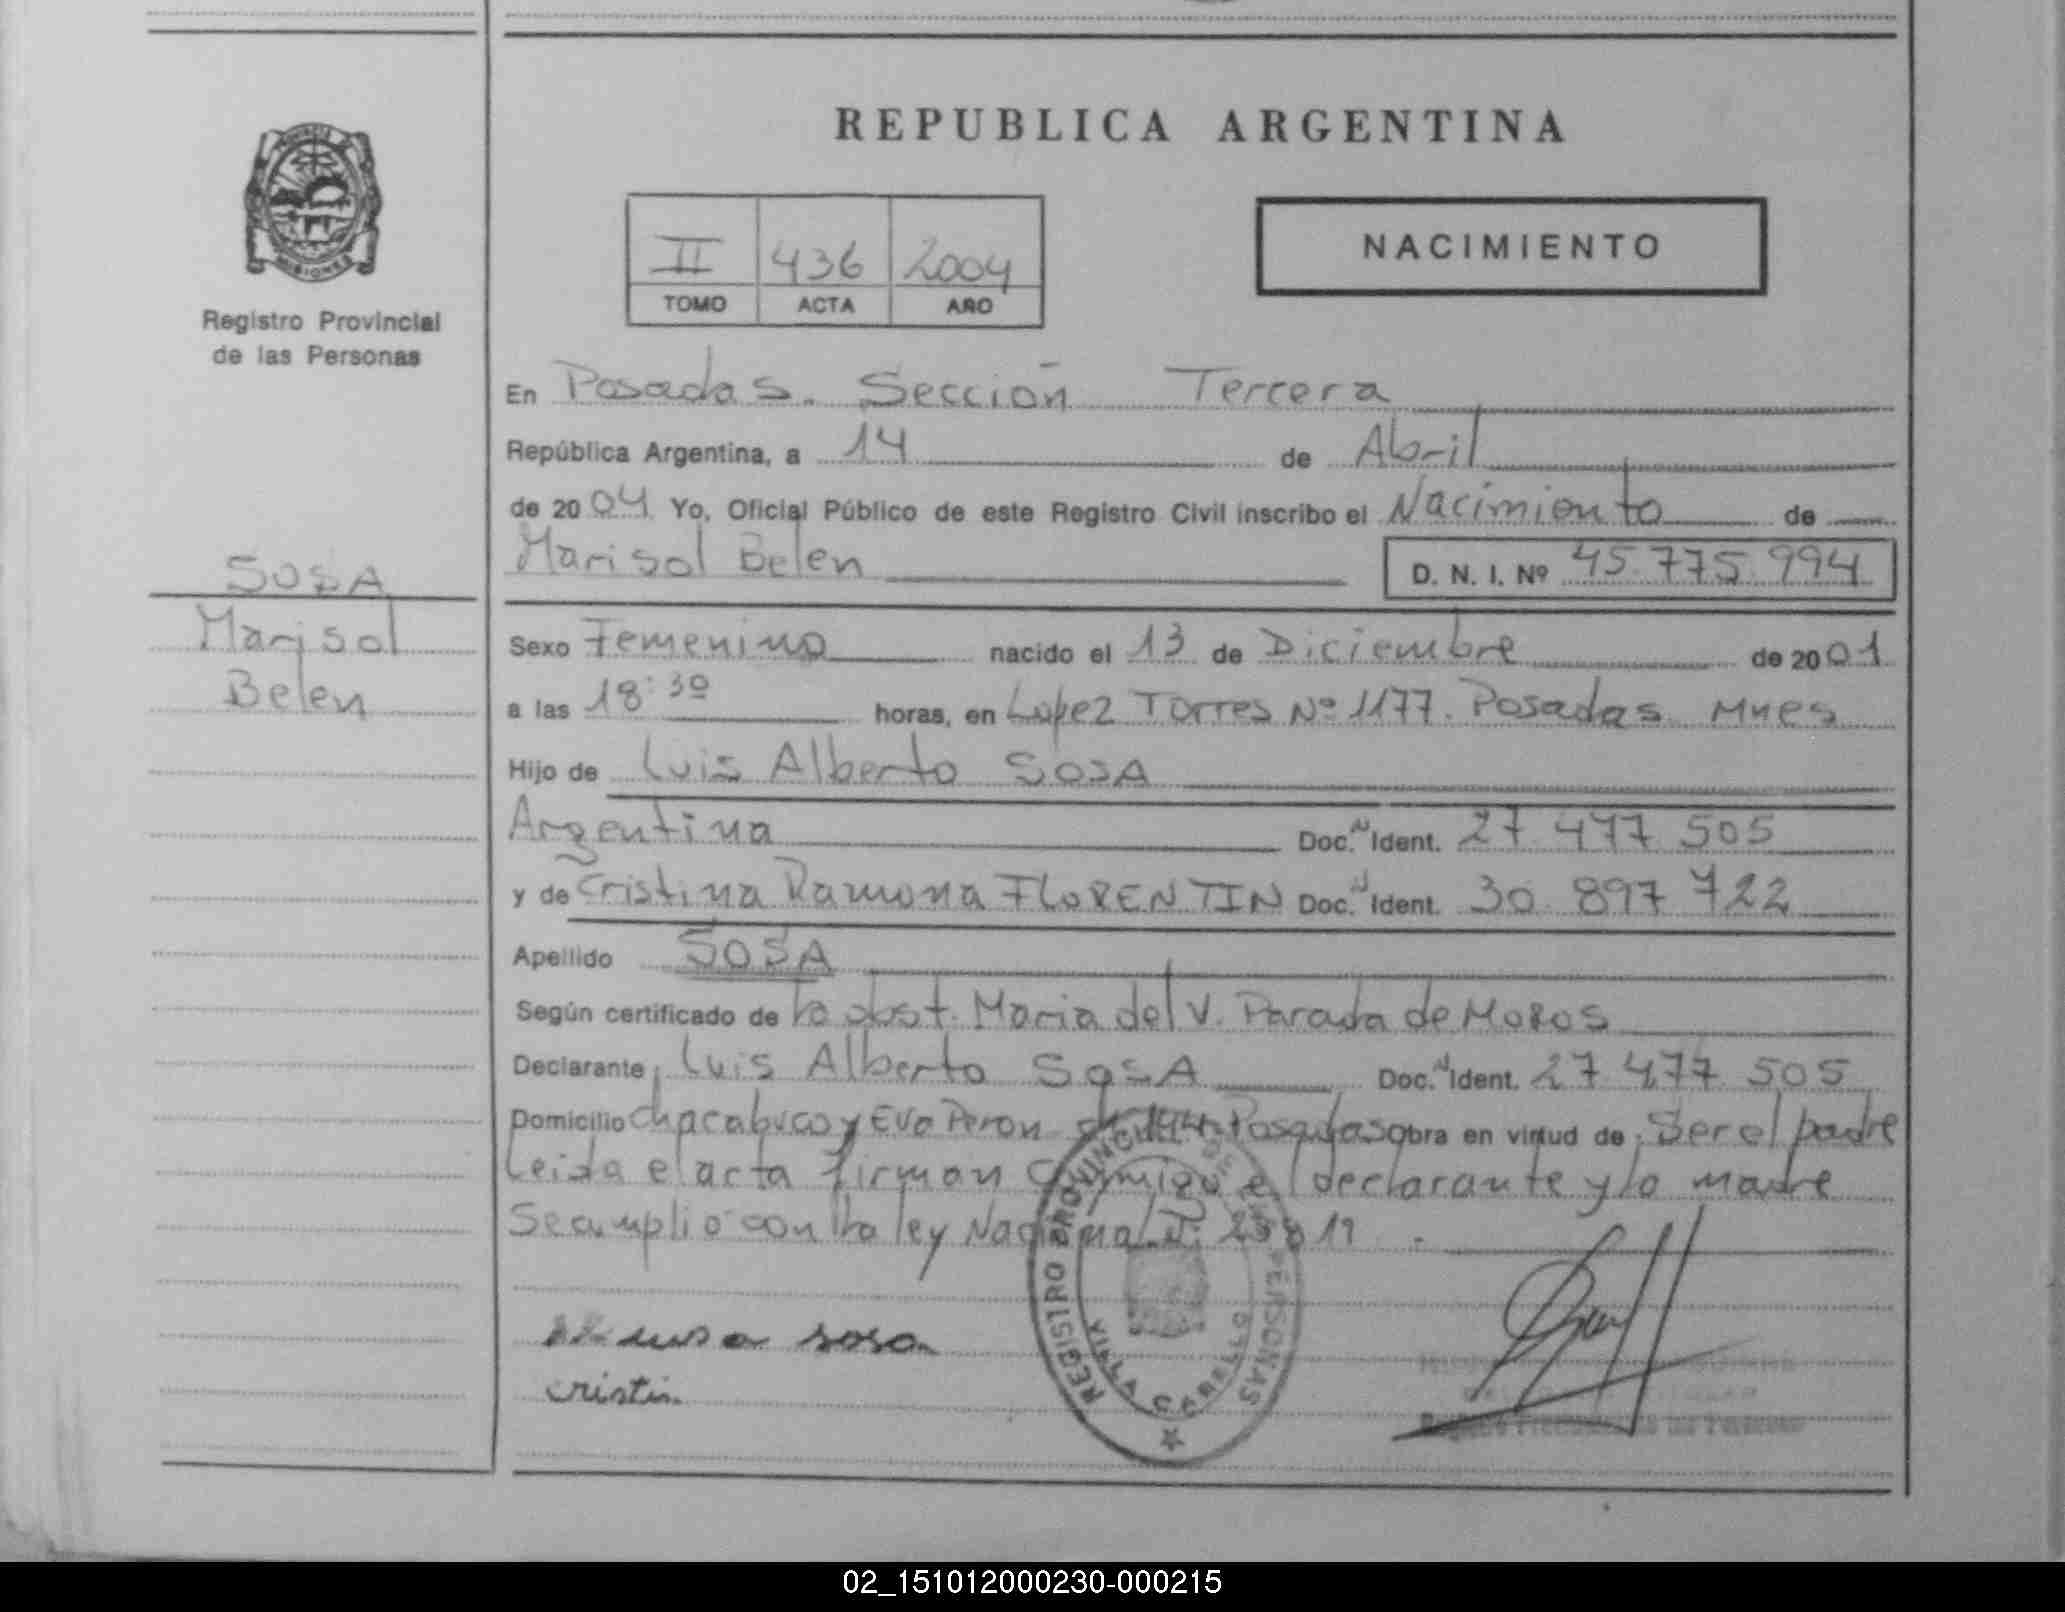 REPUBLICA ARGENTINA
NACIMIENTO
II 436 2004
TOMO ACTA AÑO
PROVINCIA
MISIONES
Registro Provincial
de las Personas
SOSA
Marisol
Belen
En Posadas. Sección Tercera
República Argentina, a 14 de Abril
de 2004 Yo, Oficial Público de este Registro Civil inscribo el Nacimiento de
Marisol Belen D. N. I. Nº 45.775.994
Sexo Femenino nacido el 13 de Diciembre de 2001
a las 18:30 horas, en Lopez Torres Nº 1177. Posadas Mnes
Hijo de Luis Alberto SOSA
Argentina Doc. N Ident. 27 477 505
y de Cristina Ramona FLORENTIN Doc. N Ident. 30 897 722
Apellido SOSA
Según certificado de la obst. Maria del V. Parada de Moros
Declarante Luis Alberto SOSA Doc. N Ident. 27 477 505
Domicilio Chacabuco y Eva Peron Posadas obra en virtud de Ser el padre
Leida el acta firman conmigo el declarante y la madre
Se cumplio con la ley Nacional
sosa
cristin
REGISTRO PROVINCIAL DE LAS PERSONAS
VILLA
02_151012000230-000215